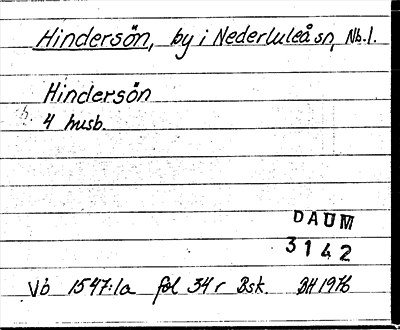 Hindersön, by i Nederluleå sn, Nb. l.
Hindersön
4 husb.
DAUM
3142
Vb 1547:1a fol 34 r Bsk. BH 1976